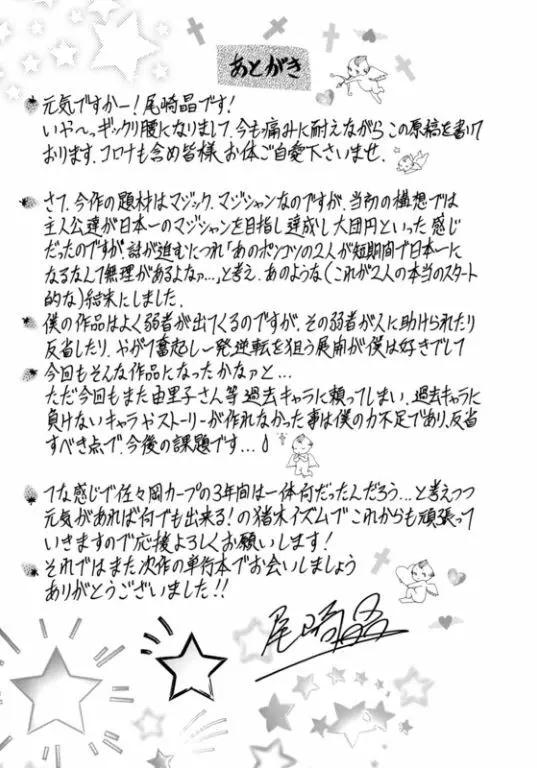 あとがき
元気ですかー!尾崎晶です!
いや〜っギックリ腰になりまして、今も痛みに耐えながらこの原稿を書いて
おります。コロナも含め皆様、お体ご自愛下さいませ.
さて、今作の題材はマジック、マジシャンなのですが、当初の構想では
主人公達が日本一のマジシャンを目指し達成し大団円といった感じ
だったのですが、話が進むにつれ「あのポンコツの2人が短期間で日本一に
なるなんて無理があるよなァ…」と考え、あのような(これが2人の本当のスタート
的な)結末にしました.
僕の作品はよく弱者が出てくるのですが、その弱者が人に助けられたり
反省したり、やがて奮起し一発逆転を狙う展開が僕は好きでして
今回もそんな作品になったかなァと…
ただ今回もまた由里子さん等過去キャラに頼ってしまい、過去キャラに
負けないキャラやストーリーが作れなかった事は僕の力不足であり、反省
すべき点で、今後の課題です…
てな感じで佐々岡カープの3年間は一体何だったんだろう…と考えつつ
元気があれば何でも出来る!の猪木イズムでこれからも頑張って
いきますので応援よろしくお願いします!
それではまた次作の単行本でお会いしましょう
ありがとうございました!!
尾崎晶